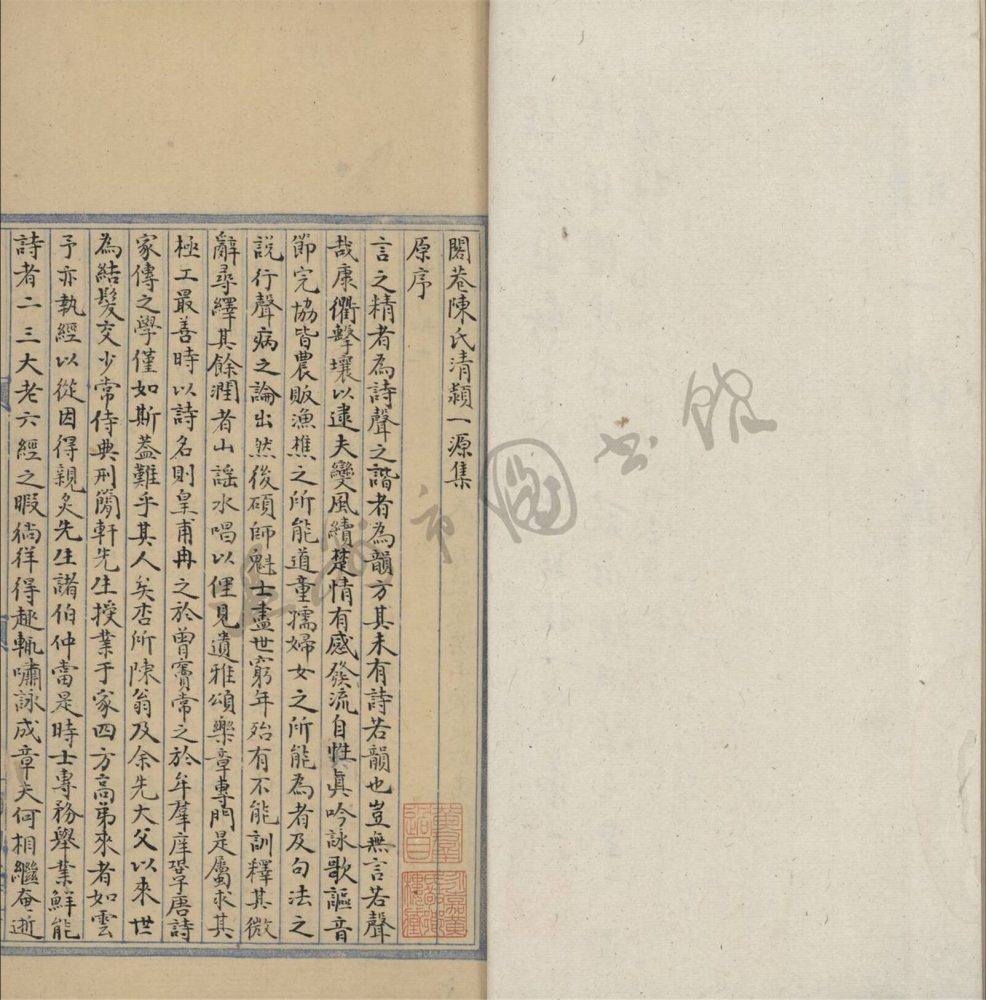 閣巷陳氏清潁一源集
原序
言之精者為詩聲之諧者為韻方其未有詩若韻也豈無言若聲
哉康衢擊壤以逮夫變風續楚情有感發流自性真吟詠歌謳音
節完協皆農販漁樵之所能道童孺婦女之所能為者及句法之
說行聲病之論出然後碩師魁士盡世窮年殆有不能訓釋其微
辭尋繹其餘潤者山謠水唱以俚見遺雅頌樂章專門是屬求其
極工最善時以詩名則皇甫冉之於曾竇常之於牟羣庠鞏唐詩
家傳之學僅如斯蓋難乎其人矣杏所陳翁及余先大父以來世
為結髮交少常侍典刑簡軒先生授業于家四方高弟來者如雲
予亦執經以從因得親炙先生諸伯仲當是時士專務舉業鮮能
詩者二三大老六經之暇徜徉得趣輒嘯詠成章夫何相繼奄逝
圖書館